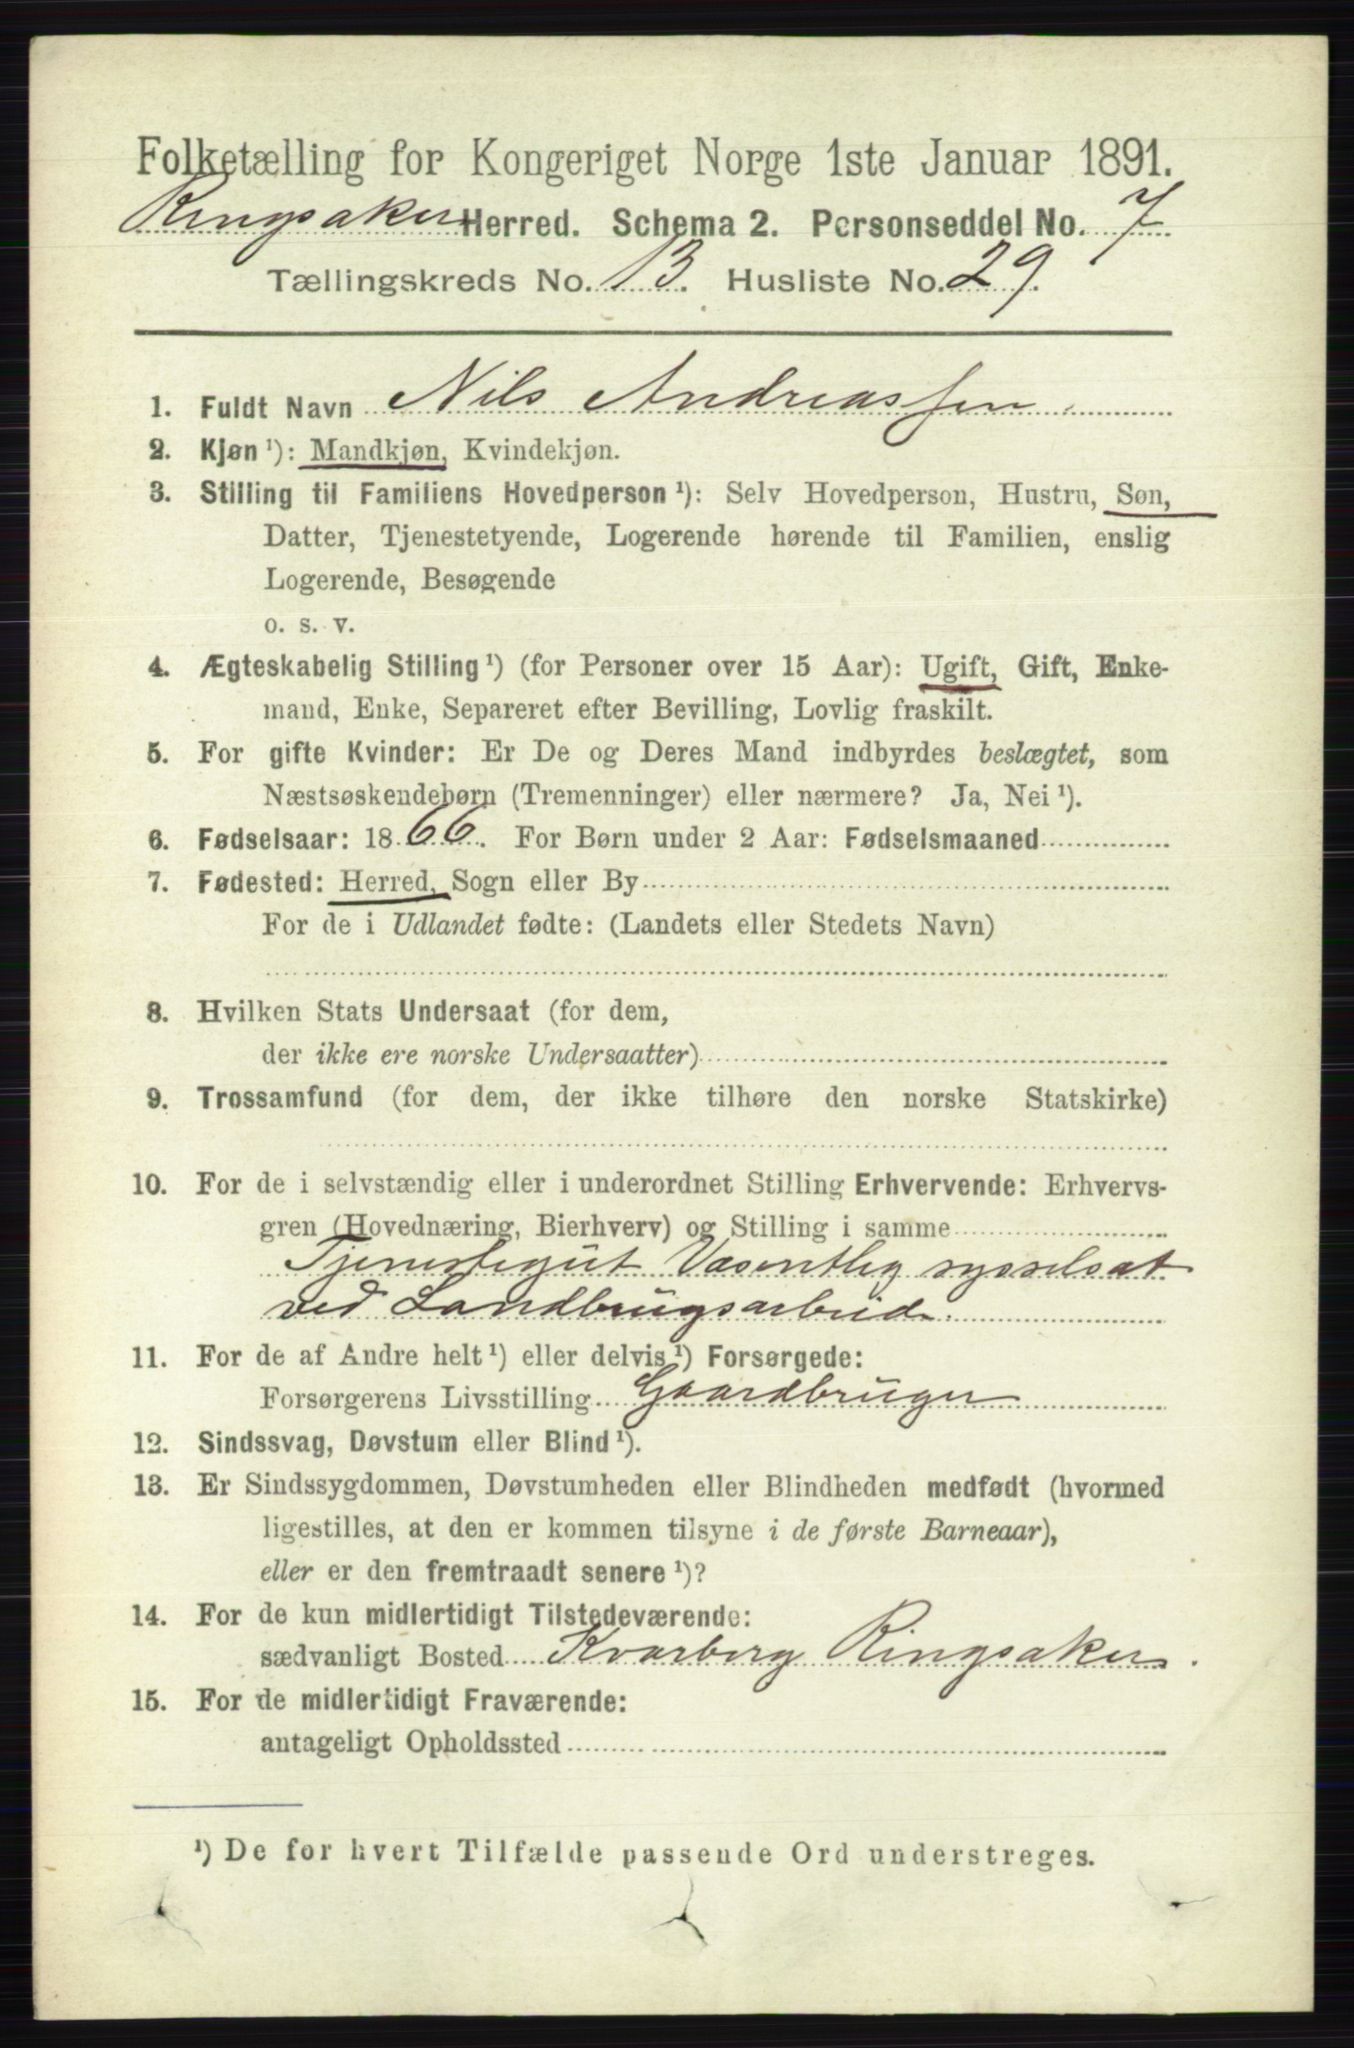 Folketælling for Kongeriget Norge 1ste Januar 1891.
Ringsaker Herred. Schema 2. Personseddel No. 7
Tællingskreds No. 13. Husliste No. 29.
1. Fuldt Navn Nils Andreassen
2. Kjøn ¹): Mandkjøn, Kvindekjøn.
3. Stilling til Familiens Hovedperson ¹): Selv Hovedperson, Hustru, Søn,
Datter, Tjenestetyende, Logerende hørende til Familien, enslig
Logerende, Besøgende
o. s. v.
4. Ægteskabelig Stilling ¹) (for Personer over 15 Aar): Ugift, Gift, Enke-
mand, Enke, Separeret efter Bevilling, Lovlig fraskilt.
5. For gifte Kvinder: Er De og Deres Mand indbyrdes beslægtet, som
Næstsøskendebørn (Tremenninger) eller nærmere? Ja, Nei ¹).
6. Fødselsaar: 1866. For Børn under 2 Aar: Fødselsmaaned
7. Fødested: Herred, Sogn eller By
For de i Udlandet fødte: (Landets eller Stedets Navn)
8. Hvilken Stats Undersaat (for dem,
der ikke ere norske Undersaatter)
9. Trossamfund (for dem, der ikke tilhøre den norske Statskirke)
10. For de i selvstændig eller i underordnet Stilling Erhvervende: Erhvervs-
gren (Hovednæring, Bierhverv) og Stilling i samme
Tjenestegut Væsentlig sysselsat
ved Landbrugsarbeide.
11. For de af Andre helt ¹) eller delvis ¹) Forsørgede:
Forsørgerens Livsstilling Gaardbruger
12. Sindssvag, Døvstum eller Blind ¹).
13. Er Sindssygdommen, Døvstumheden eller Blindheden medfødt (hvormed
ligestilles, at den er kommen tilsyne i de første Barneaar),
eller er den fremtraadt senere ¹)?
14. For de kun midlertidigt Tilstedeværende:
sædvanligt Bosted Kvarberg Ringsaker.
15. For de midlertidigt Fraværende:
antageligt Opholdssted
¹) De for hvert Tilfælde passende Ord understreges.